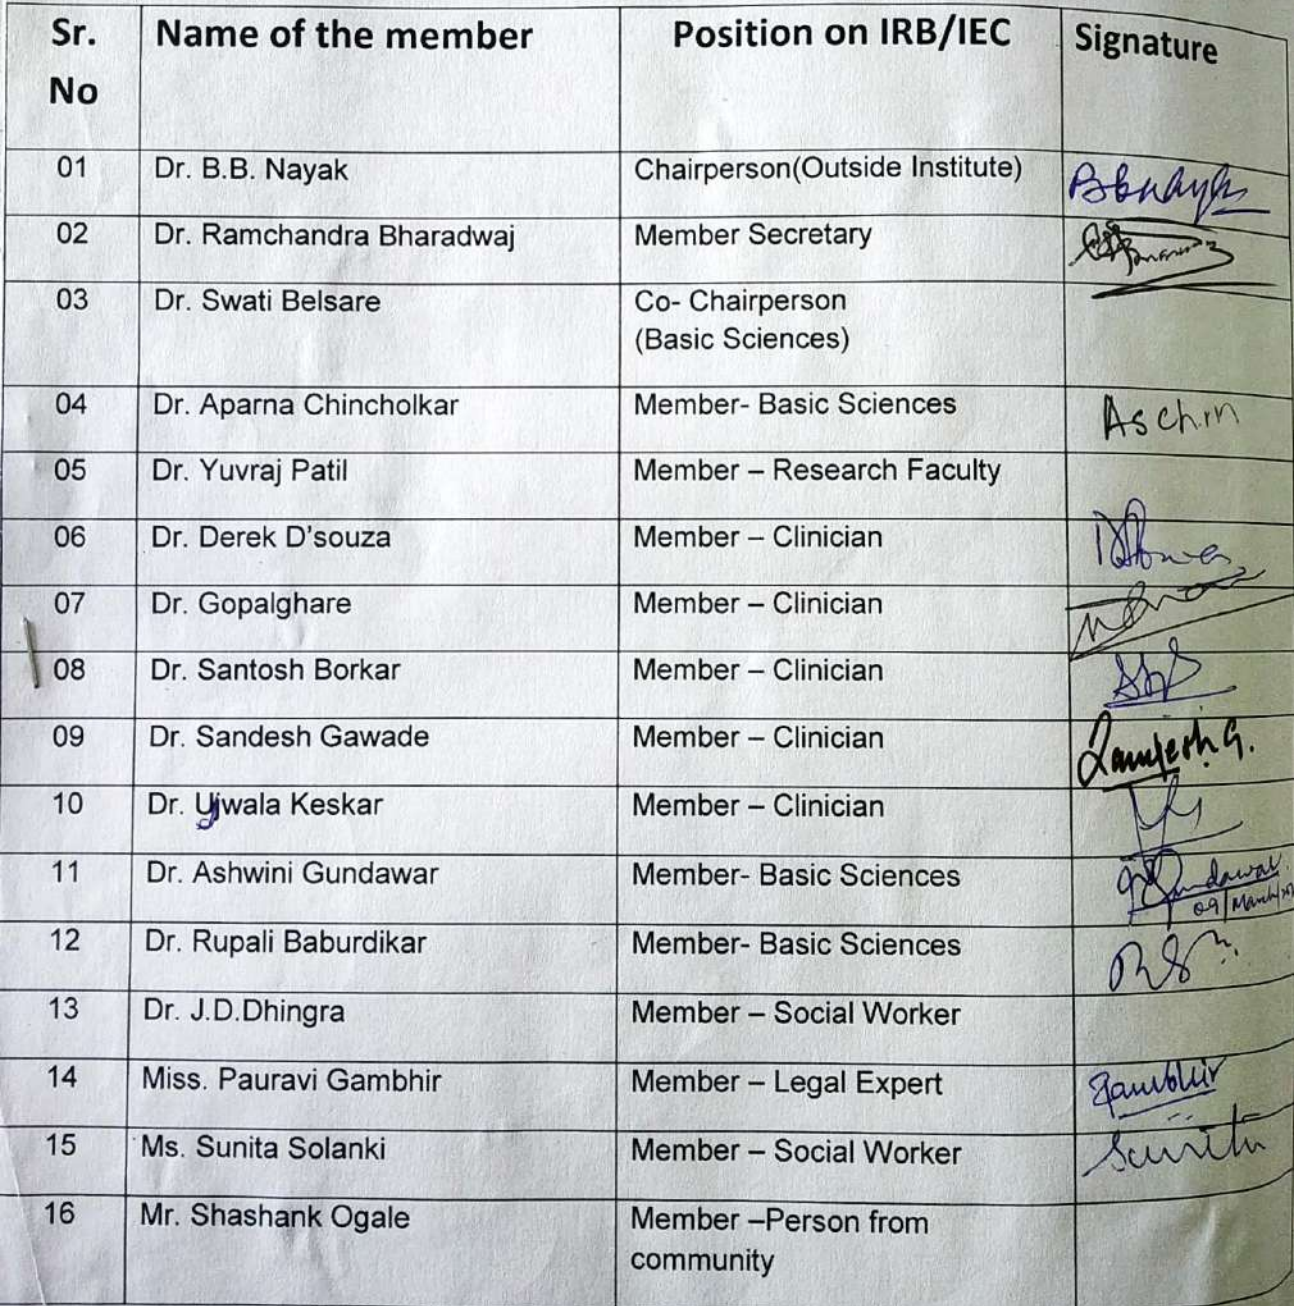 Sr. No Name of the member Position on IRB/IEC Signature
01 Dr. B.B. Nayak Chairperson(Outside Institute) Bbnayak
02 Dr. Ramchandra Bharadwaj Member Secretary
03 Dr. Swati Belsare Co- Chairperson
(Basic Sciences)
04 Dr. Aparna Chincholkar Member- Basic Sciences Aschin
05 Dr. Yuvraj Patil Member – Research Faculty
06 Dr. Derek D'souza Member – Clinician
07 Dr. Gopalghare Member – Clinician
08 Dr. Santosh Borkar Member – Clinician
09 Dr. Sandesh Gawade Member – Clinician
10 Dr. Ujwala Keskar Member – Clinician
11 Dr. Ashwini Gundawar Member- Basic Sciences Gundawar
09/March/
12 Dr. Rupali Baburdikar Member- Basic Sciences
13 Dr. J.D.Dhingra Member – Social Worker
14 Miss. Pauravi Gambhir Member – Legal Expert Gambhir
15 Ms. Sunita Solanki Member – Social Worker Sunita
16 Mr. Shashank Ogale Member –Person from
community